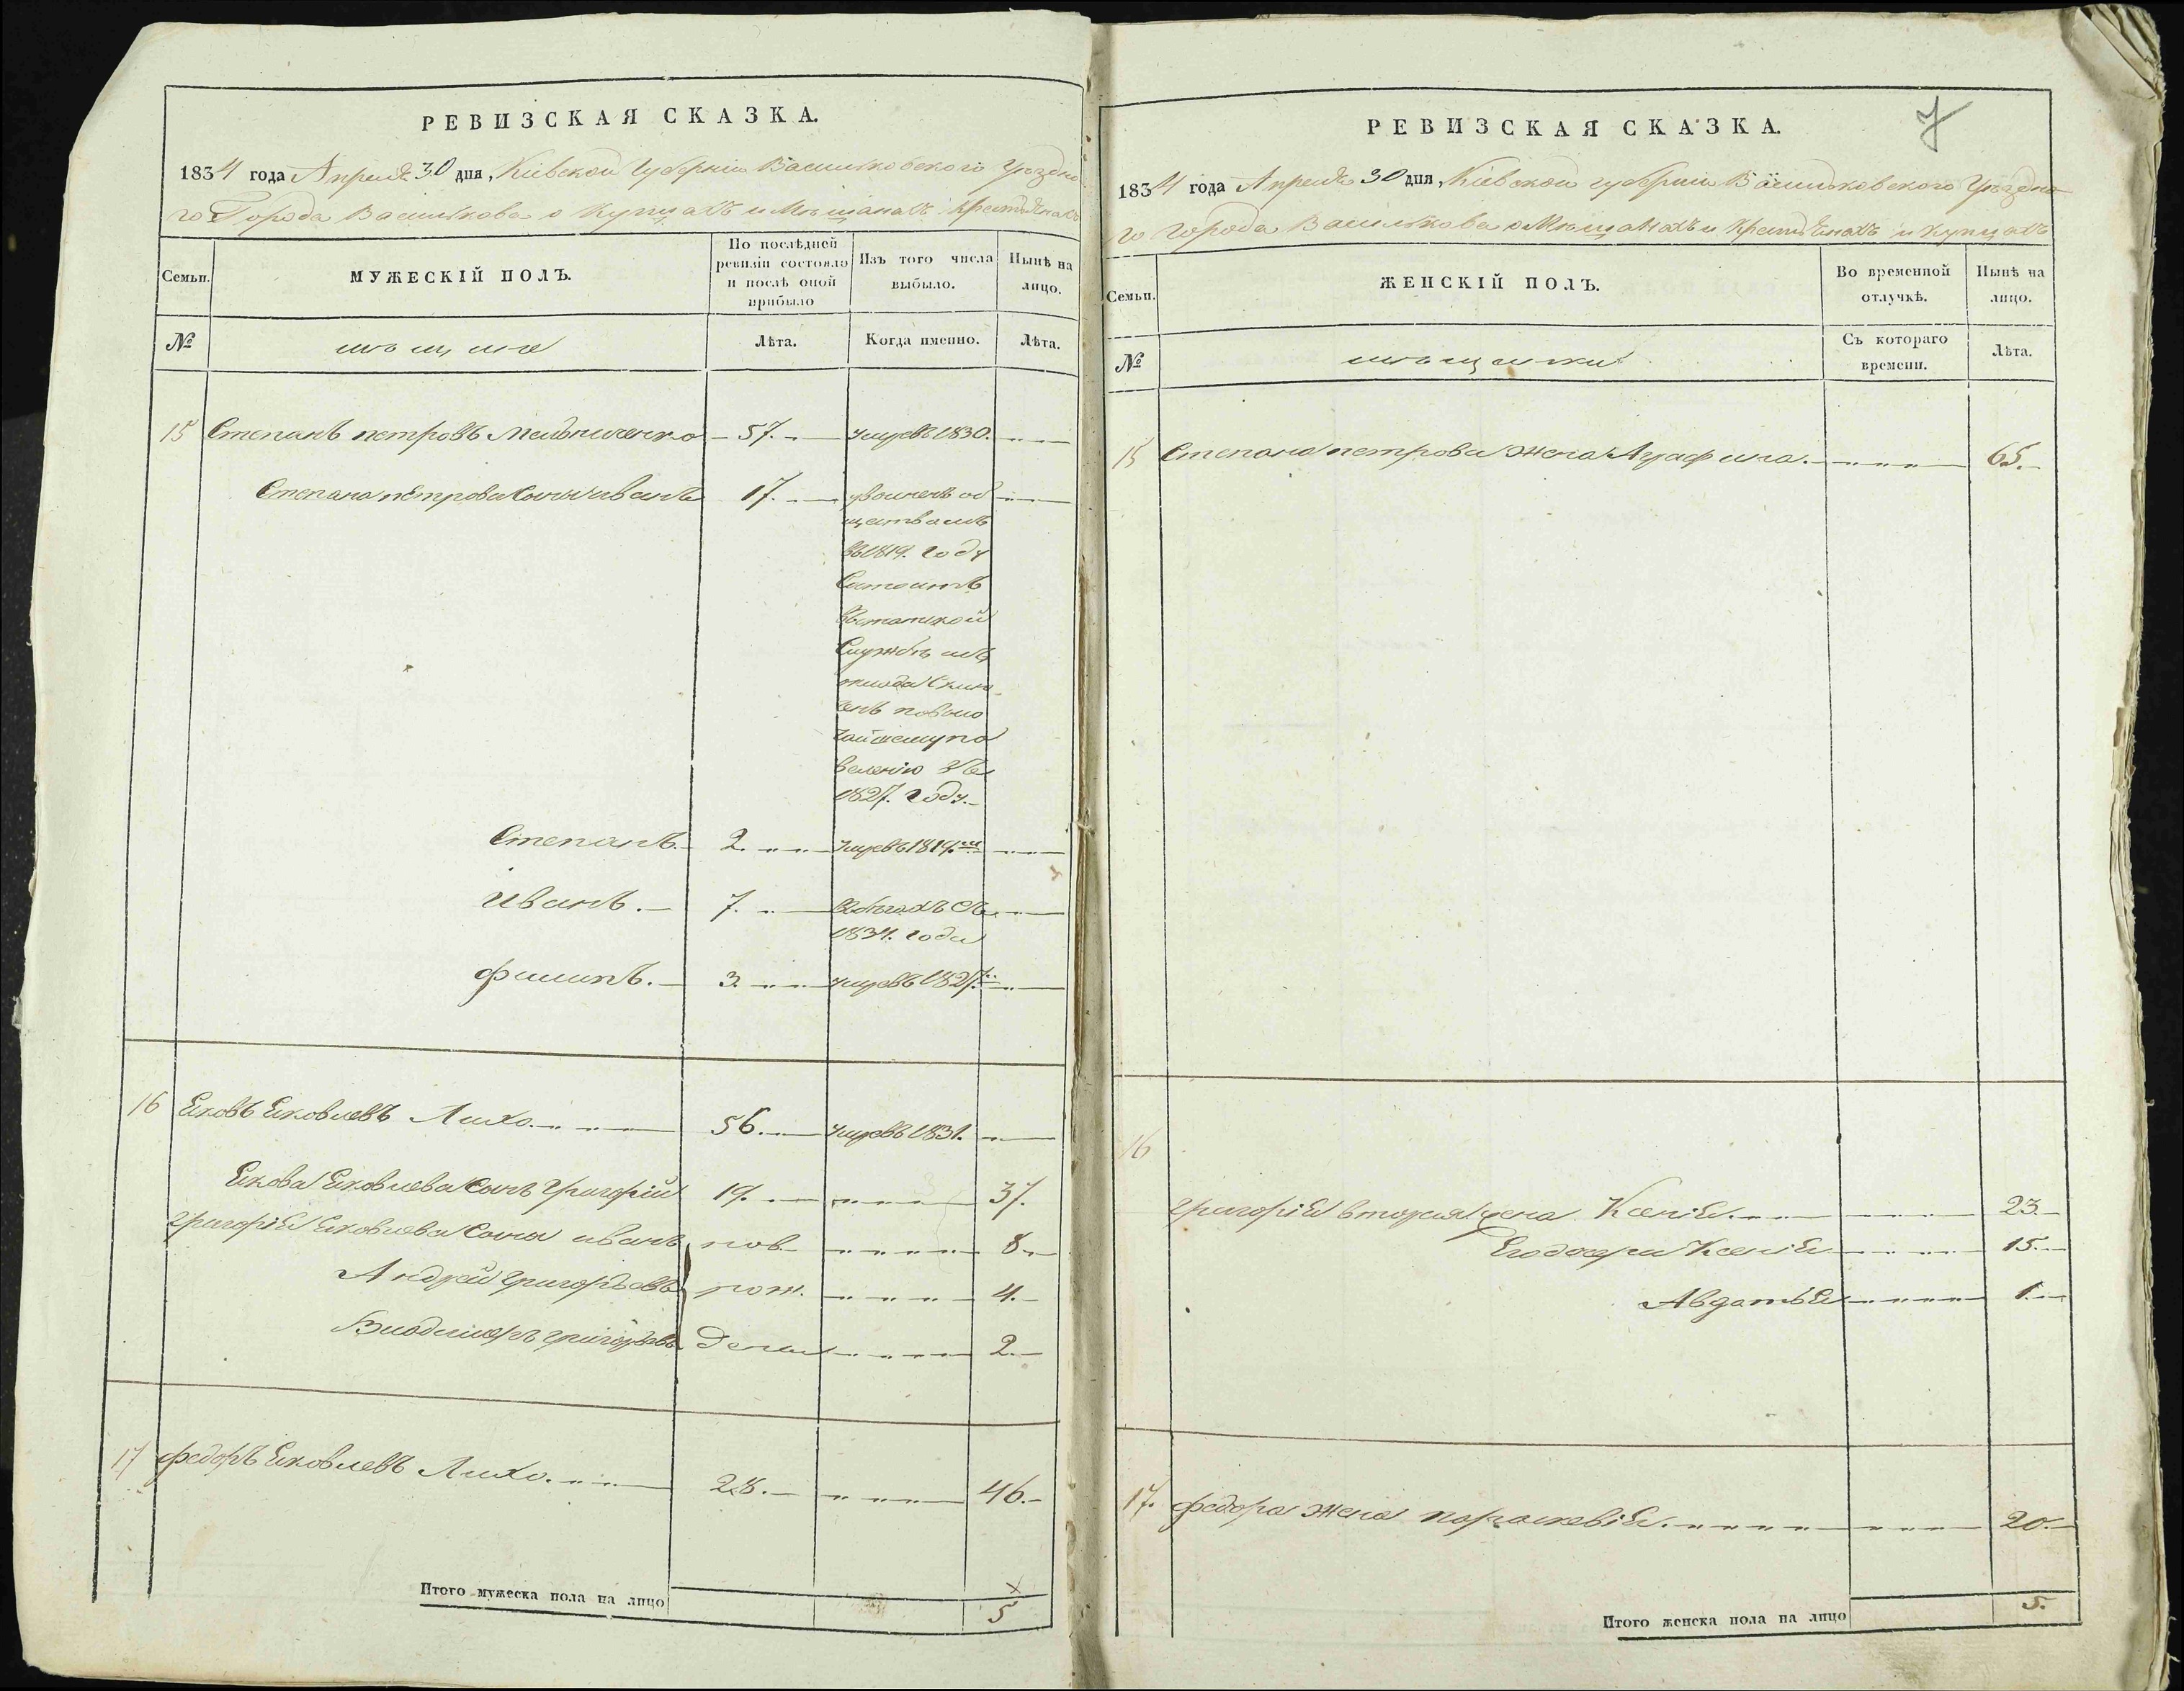 РЕВИЗСКАЯ СКАЗКА.
1834 года Апреля 30 дня, Кіевской губерніи Васильковского уѣздна
го Города Василькова о Купцахъ и Мѣщанахъ Християнахъ
Семьи.
МУЖЕСКІЙ ПОЛЪ.
По послѣдней
ревизіи состояло
и послѣ оной
прибыло
Изъ того числа
выбыло.
Нынѣ на
лицо.
№
мѣщане
Лѣта.
Когда именно.
Лѣта.
15 Степанъ петровъ Мельниченко 57. умревъ 1830.
Степана петрова сыны иванъ 17. об
ществамъ
въ 1819. году
Состоитъ
Службѣ изъ
оклада Склю
ченъ повысо
чайшему по
велению
1827. году.
Степанъ. 2. умревъ 1819.
иванъ. 7. Вбѣгахъ съ
1834. года
филипъ. 3. умревъ 1827.
16 Яковъ Яковлевъ Лихо. 56. умревъ 1831.
Якова Яковлева Сынъ Григорій 19. 37.
Григорія Яковлева Сыны иванъ нов. 8.
Андрей Григорьевъ рож. 4.
Владимеръ Григорьевъ дены 2.
17 федоръ Яковлевъ Лихо. 28. 46.
Итого мужеска пола на лицо 5
7
РЕВИЗСКАЯ СКАЗКА.
1834 года Апреля 30 дня, Кіевской губерніи Васильковского Уѣздна
го Города Василькова о Мѣщанахъ и Християнахъ и купцахъ
Семьи.
ЖЕНСКІЙ ПОЛЪ.
Во временной
отлучкѣ.
Нынѣ на
лицо.
№
мѣщанки
Съ котораго
времени.
Лѣта.
15 Степана петрова жена Агафия. 65.
16
Григорія вторая жена Ксенія. 23.
Егодочери Ксенія 15.
Авдотья 1.
17. федора жена параскевія. 20.
Итого женска пола на лицо 5.